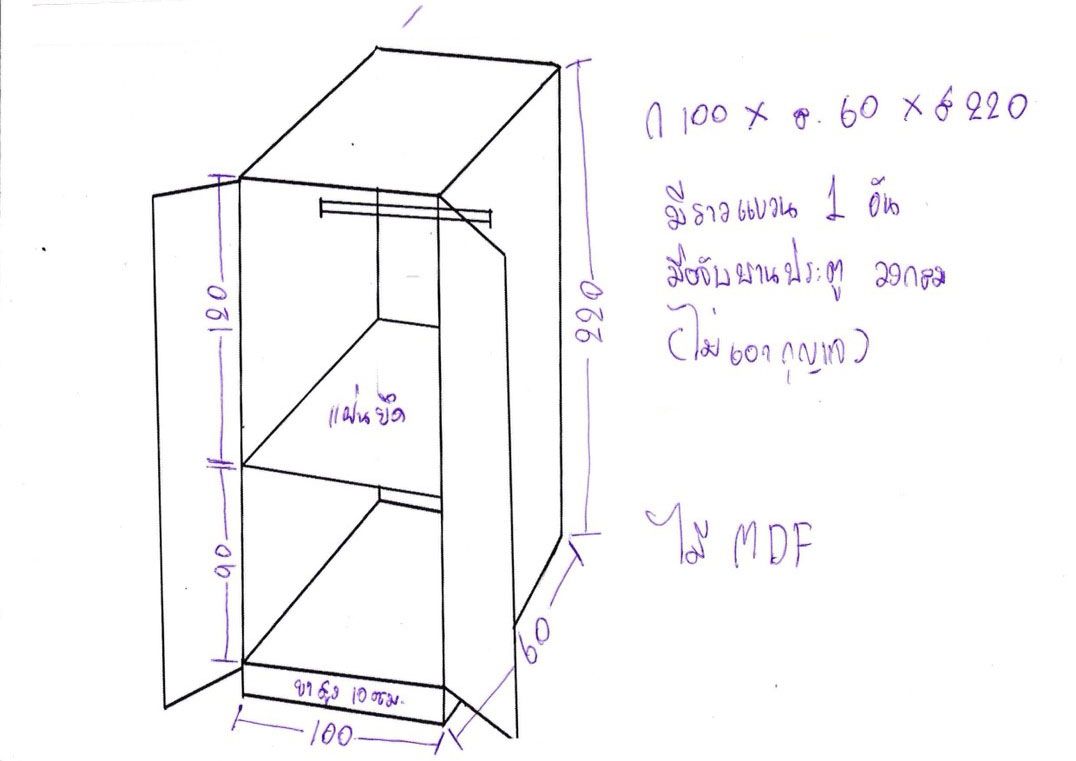 ก 100 x ล. 60 x ส 220
มีราวแขวน 1 อัน
มือจับบานประตู วงกลม
(ไม่เอากุญแจ)
220
120
แผ่นยึด
ไม้ MDF
90
60
ขาสูง 10 ซม.
100